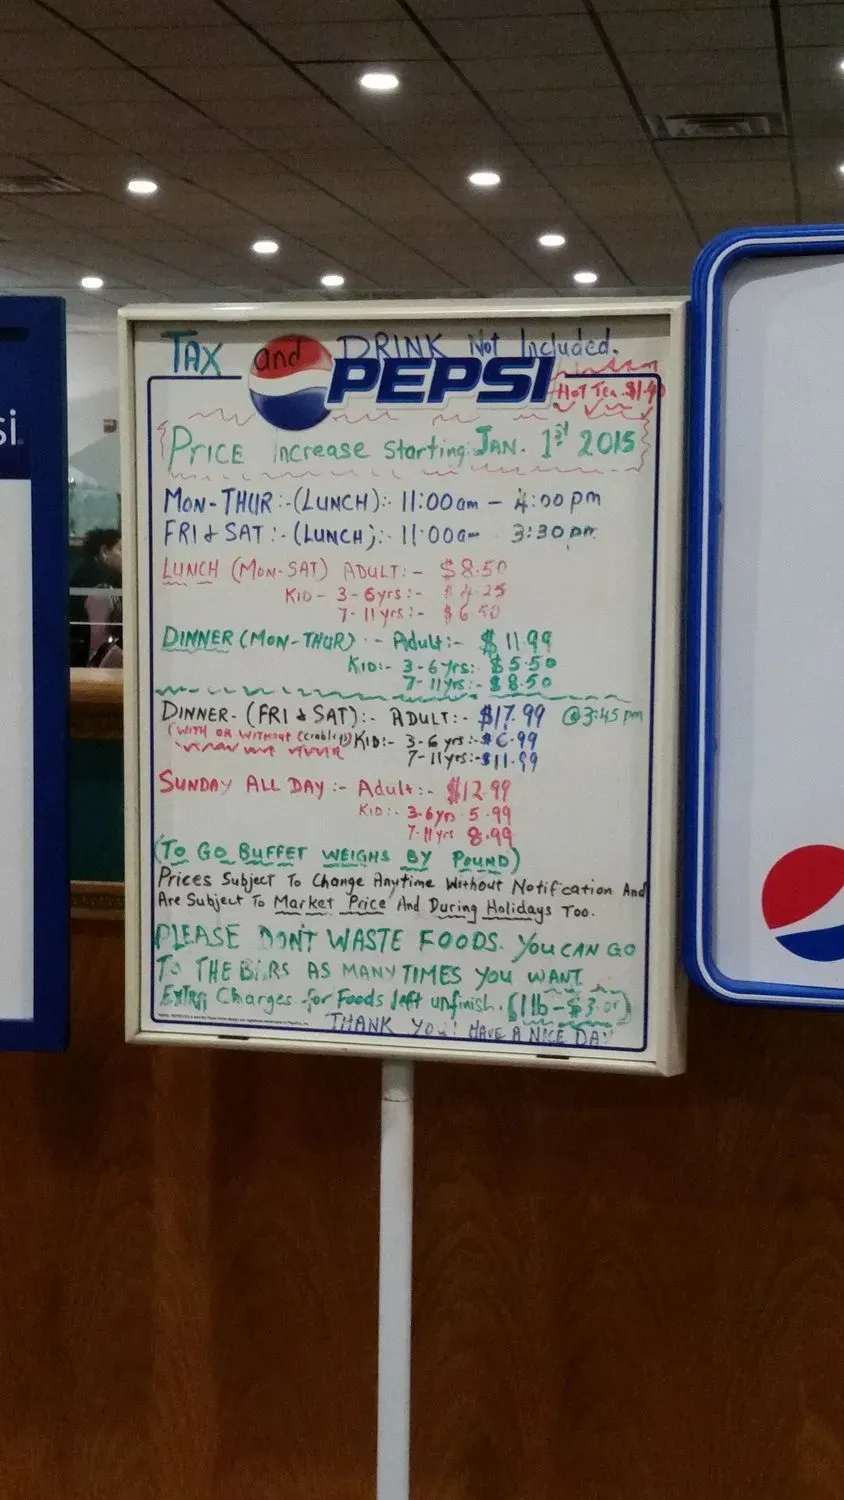 TAX and DRINK Not Included.
PEPSI
HOT TEA $1.40
PRICE increase starting: JAN. 1st 2015
MON-THUR:-(LUNCH):- 11:00am - 4:00pm
FRI & SAT:- (LUNCH):- 11:00am 3:30pm
LUNCH (MON-SAT) ADULT:- $8.50
KID- 3-6yrs:- $4.25
7-11yrs:- $6.50
DINNER (MON-THUR) :- Adult:- $11.99
KID:- 3-6yrs:- $5.50
7-11yrs:- $8.50
DINNER- (FRI & SAT):- ADULT:- $17.99 @3:45pm
(WITH OR WITHOUT Crablegs) KID:- 3-6yrs:-$6.99
7-11yrs:-$11.99
SUNDAY ALL DAY:- Adult:- $12.99
KID:- 3-6yrs 5.99
7-11yrs 8.99
(TO GO BUFFET WEIGHS BY POUND)
Prices Subject To Change Anytime Without Notification And
Are Subject To Market Price And During Holidays Too.
PLEASE DON'T WASTE FOODS. YOU CAN GO
TO THE BARS AS MANY TIMES YOU WANT
EXTRA Charges for Foods left unfinish. (1lb-$3.00)
THANK YOU! HAVE A NICE DAY
si